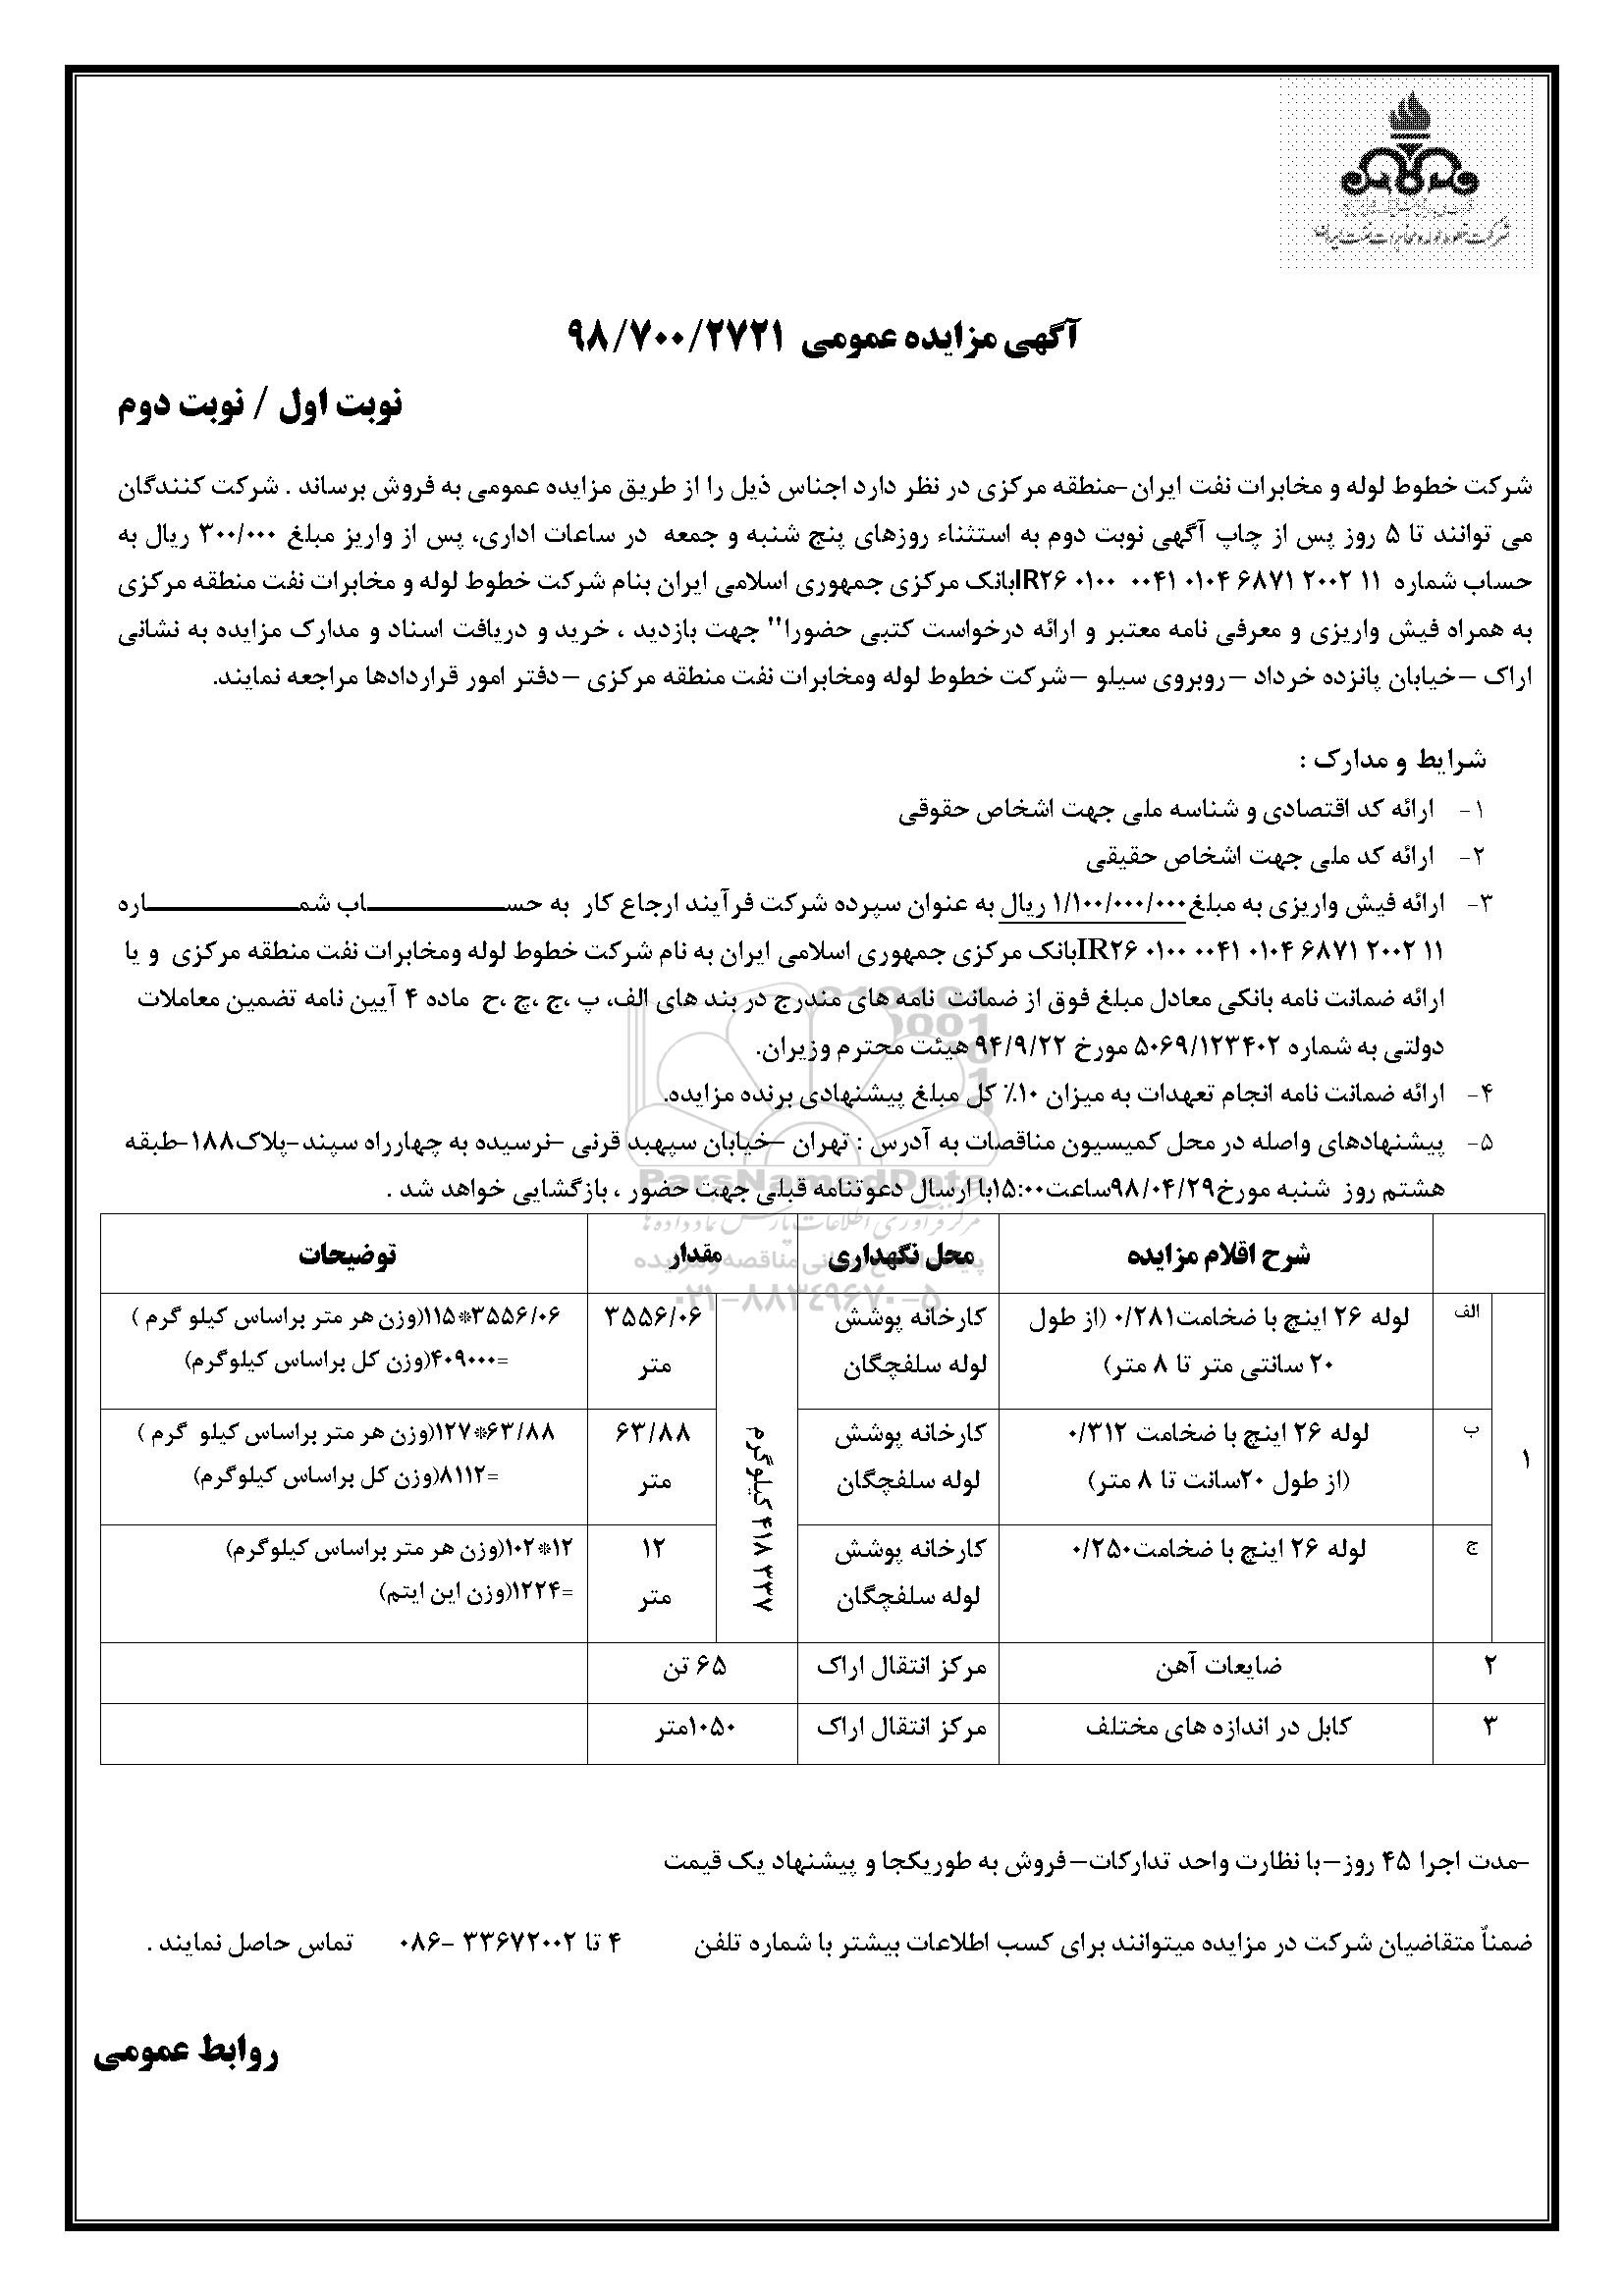 شرکت خطوط لوله و مخابرات نفت ایران
آگهی مزایده عمومی ۹۸/۷۰۰/۲۷۲۱
نوبت اول / نوبت دوم
شرکت خطوط لوله و مخابرات نفت ایران-منطقه مرکزی در نظر دارد اجناس ذیل را از طریق مزایده عمومی به فروش برساند . شرکت کنندگان
می توانند تا ۵ روز پس از چاپ آگهی نوبت دوم به استثناء روزهای پنج شنبه و جمعه در ساعات اداری، پس از واریز مبلغ ۳۰۰/۰۰۰ ریال به
حساب شماره IR۲۶ ۰۱۰۰ ۰۰۴۱ ۰۱۰۴ ۶۸۷۱ ۲۰۰۲ ۱۱بانک مرکزی جمهوری اسلامی ایران بنام شرکت خطوط لوله و مخابرات نفت منطقه مرکزی
به همراه فیش واریزی و معرفی نامه معتبر و ارائه درخواست کتبی حضورا" جهت بازدید ، خرید و دریافت اسناد و مدارک مزایده به نشانی
اراک –خیابان پانزده خرداد –روبروی سیلو –شرکت خطوط لوله ومخابرات نفت منطقه مرکزی –دفتر امور قراردادها مراجعه نمایند.
شرایط و مدارک :
۱- ارائه کد اقتصادی و شناسه ملی جهت اشخاص حقوقی
۲- ارائه کد ملی جهت اشخاص حقیقی
۳- ارائه فیش واریزی به مبلغ۱/۱۰۰/۰۰۰/۰۰۰ ریال به عنوان سپرده شرکت فرآیند ارجاع کار به حســـــــــاب شمـــــــــاره
IR۲۶ ۰۱۰۰ ۰۰۴۱ ۰۱۰۴ ۶۸۷۱ ۲۰۰۲ ۱۱بانک مرکزی جمهوری اسلامی ایران به نام شرکت خطوط لوله ومخابرات نفت منطقه مرکزی و یا
ارائه ضمانت نامه بانکی معادل مبلغ فوق از ضمانت نامه های مندرج در بند های الف، پ ،ج ،چ ،ح ماده ۴ آیین نامه تضمین معاملات
دولتی به شماره ۵۰۶۹/۱۲۳۴۰۲ مورخ ۹۴/۹/۲۲ هیئت محترم وزیران.
۴- ارائه ضمانت نامه انجام تعهدات به میزان ۱۰٪ کل مبلغ پیشنهادی برنده مزایده.
۵- پیشنهادهای واصله در محل کمیسیون مناقصات به آدرس : تهران –خیابان سپهبد قرنی –نرسیده به چهارراه سپند-پلاک۱۸۸-طبقه
هشتم روز شنبه مورخ۹۸/۰۴/۲۹ساعت۱۵:۰۰با ارسال دعوتنامه قبلی جهت حضور ، بازگشایی خواهد شد .
ParsNamadData
مرکز فرآوری اطلاعات پارس نماد داده ها
۰۲۱-۸۸۳۴۹۶۷۰-۵
شرح اقلام مزایده محل نگهداری مقدار توضیحات
۱
الف لوله ۲۶ اینچ با ضخامت۰/۲۸۱ (از طول کارخانه پوشش ۳۵۵۶/۰۶ ۳۵۵۶/۰۶*۱۱۵(وزن هر متر براساس کیلو گرم )
۲۰ سانتی متر تا ۸ متر) لوله سلفچگان متر =۴۰۹۰۰۰(وزن کل براساس کیلوگرم)
ب لوله ۲۶ اینچ با ضخامت ۰/۳۱۲ کارخانه پوشش ۶۳/۸۸ ۶۳/۸۸*۱۲۷(وزن هر متر براساس کیلو گرم )
(از طول ۲۰سانت تا ۸ متر) لوله سلفچگان متر =۸۱۱۲(وزن کل براساس کیلوگرم)
ج لوله ۲۶ اینچ با ضخامت۰/۲۵۰ کارخانه پوشش ۱۲ ۱۲*۱۰۲(وزن هر متر براساس کیلوگرم)
لوله سلفچگان متر =۱۲۲۴(وزن این ایتم)
۴۱۸ ۳۳۷ کیلوگرم
۲ ضایعات آهن مرکز انتقال اراک ۶۵ تن
۳ کابل در اندازه های مختلف مرکز انتقال اراک ۱۰۵۰متر
-مدت اجرا ۴۵ روز–با نظارت واحد تدارکات–فروش به طوریکجا و پیشنهاد یک قیمت
ضمناً متقاضیان شرکت در مزایده میتوانند برای کسب اطلاعات بیشتر با شماره تلفن ۴ تا ۳۳۶۷۲۰۰۲ -۰۸۶ تماس حاصل نمایند .
روابط عمومی